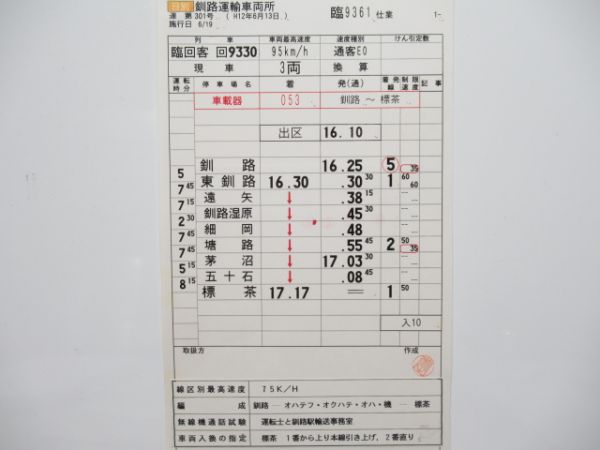 釧路運輸車両所
達 第 301号 ( H12年6月13日 )
施行日 6/19
臨9361 仕業
1-
列 車 車両最高速度 速度種別 けん引定数
臨回客 回9330 95km/h 通客E0
現 車 3両 換 算
運転時分 停車場名 着 発(通) 着発線 制限速度 記事
車載器 053 釧路 ～ 標茶
出区 16.10
釧 路 16.25 5 35
5
東 釧 路 16.30 .30 30 1 60 60
7 45
遠 矢 ↓ .38 15
7 15
釧路湿原 ↓ .45 30
2 30
細 岡 ↓ .48
7 45
塘 路 ↓ .55 45 2 50 35
7 45
茅 沼 ↓ 17.03 30
5 15
五 十 石 ↓ .08 45
8 15
標 茶 17.17 ＝ 1 50
入10
取扱方 作成
線区別最高速度 75K/H
編 成 釧路 ― オハテフ・オクハテ・オハ・機 ― 標茶
無線機通話試験 運転士と釧路駅輸送事務室
車両入換の指定 標茶 1番から上り本線引き上げ、2番直り